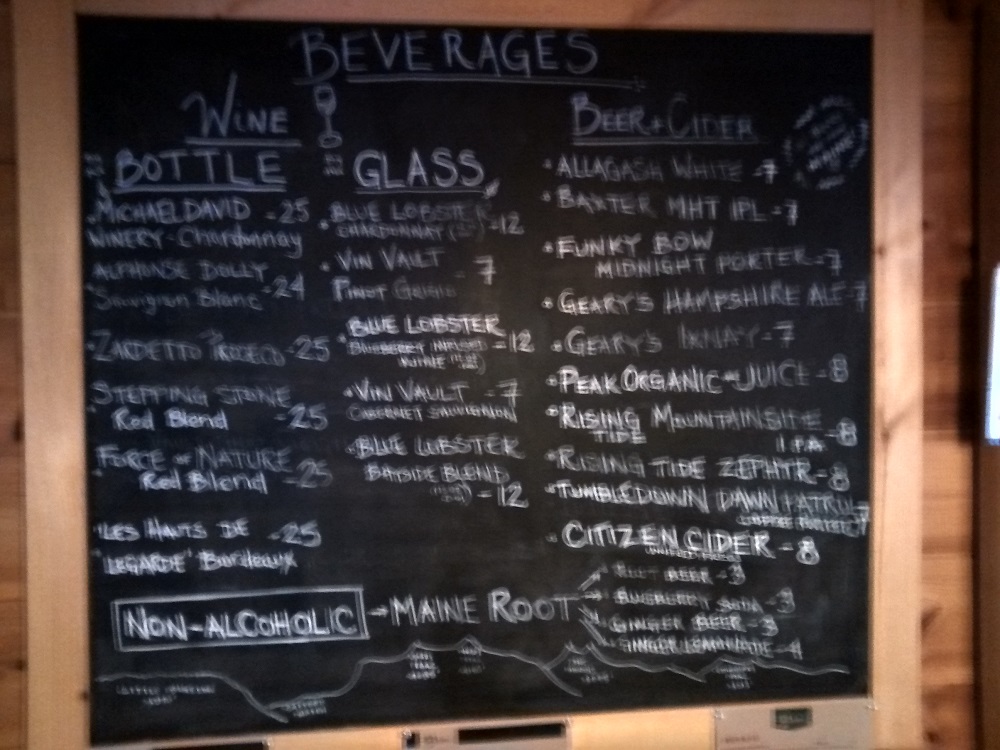 BEVERAGES
WINE
BOTTLE
MICHAELDAVID -25
WINERY-Chardonnay
ALPHONSE DOLLY
Sauvignon Blanc -24
ZARDETTO PROSECCO -25
STEPPING STONE
Red Blend -25
FORCE OF NATURE
Red Blend -25
"LES HAUTS DE -25
LEGARDE" Bordeaux
GLASS
BLUE LOBSTER
CHARDONNAY -12
VIN VAULT
PINOT GRIGIO - 7
BLUE LOBSTER
BLUEBERRY INFUSED -12
WINE
VIN VAULT -7
CABERNET SAUVIGNON
BLUE LOBSTER
BAYSIDE BLEND
-12
BEER+CIDER
ALLAGASH WHITE -7
BAXTER MHT IPL -7
FUNKY BOW
MIDNIGHT PORTER -7
GEARY'S HAMPSHIRE ALE -7
GEARY'S -7
PEAK ORGANIC JUICE -8
RISING MOUNTAINSITE
TIDE IPA -8
RISING TIDE ZEPHYR -8
TUMBLEDOWN DAWN PATROL
COFFEE PORTER -7
CITIZEN CIDER -8
NON-ALCOHOLIC → MAINE ROOT
ROOT BEER -3
BLUEBERRY SODA -3
GINGER BEER -3
GINGER LEMONADE -4